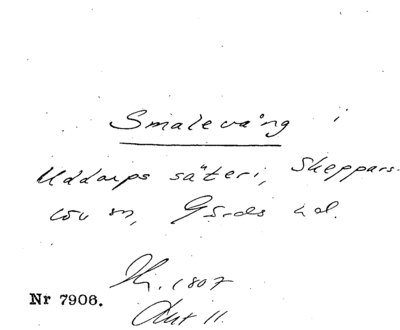 Smalevång i
Uddarps säteri, Skeppars-
löv sn, Gärds hd.
Kr. 1807
Akt 11.
Nr 7906.